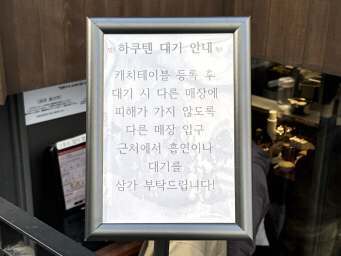 하쿠텐 대기 안내
캐치테이블 등록 후
대기 시 다른 매장에
피해가 가지 않도록
다른 매장 입구
근처에서 흡연이나
대기를
삼가 부탁드립니다!